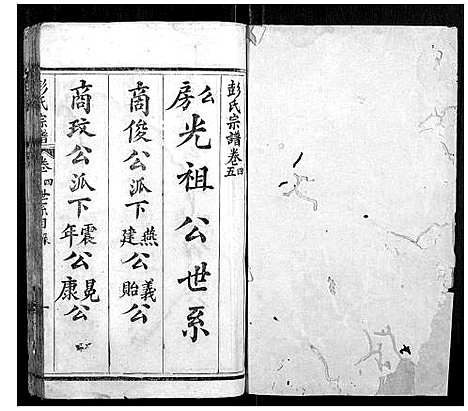 彭氏宗譜卷四五
么房光祖公世系
商俊公派下燕義建貽公
商玟公派下震晃年康公公
彭氏宗譜 卷四 世系目錄